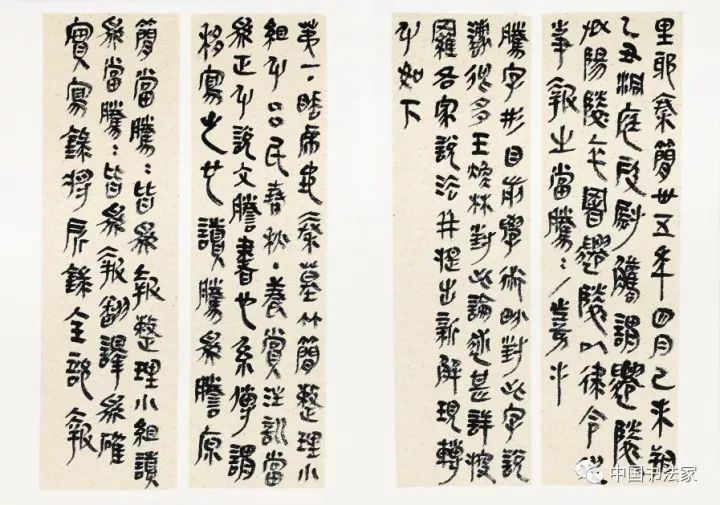 里耶秦簡卅五年四月己未朔
乙丑洞庭叚尉觿謂遷陵
丞陽陵卒署遷陵以律令從
事報之當騰=/嘉手
騰字形目前學術界對此字說
識很多王煥林對此論述甚詳搜
羅各家說法并提出新解現轉
于如下
第一·睡虎地秦墓竹簡整理小
組于呂氏春秋·養賞注訓當
爲正于說文謄書也系傳謂
移寫之也讀騰爲謄原
簡當騰=皆爲報整理小組讀
爲當騰=皆爲報翻譯爲確
實寫錄將所錄全部報
中国书法家